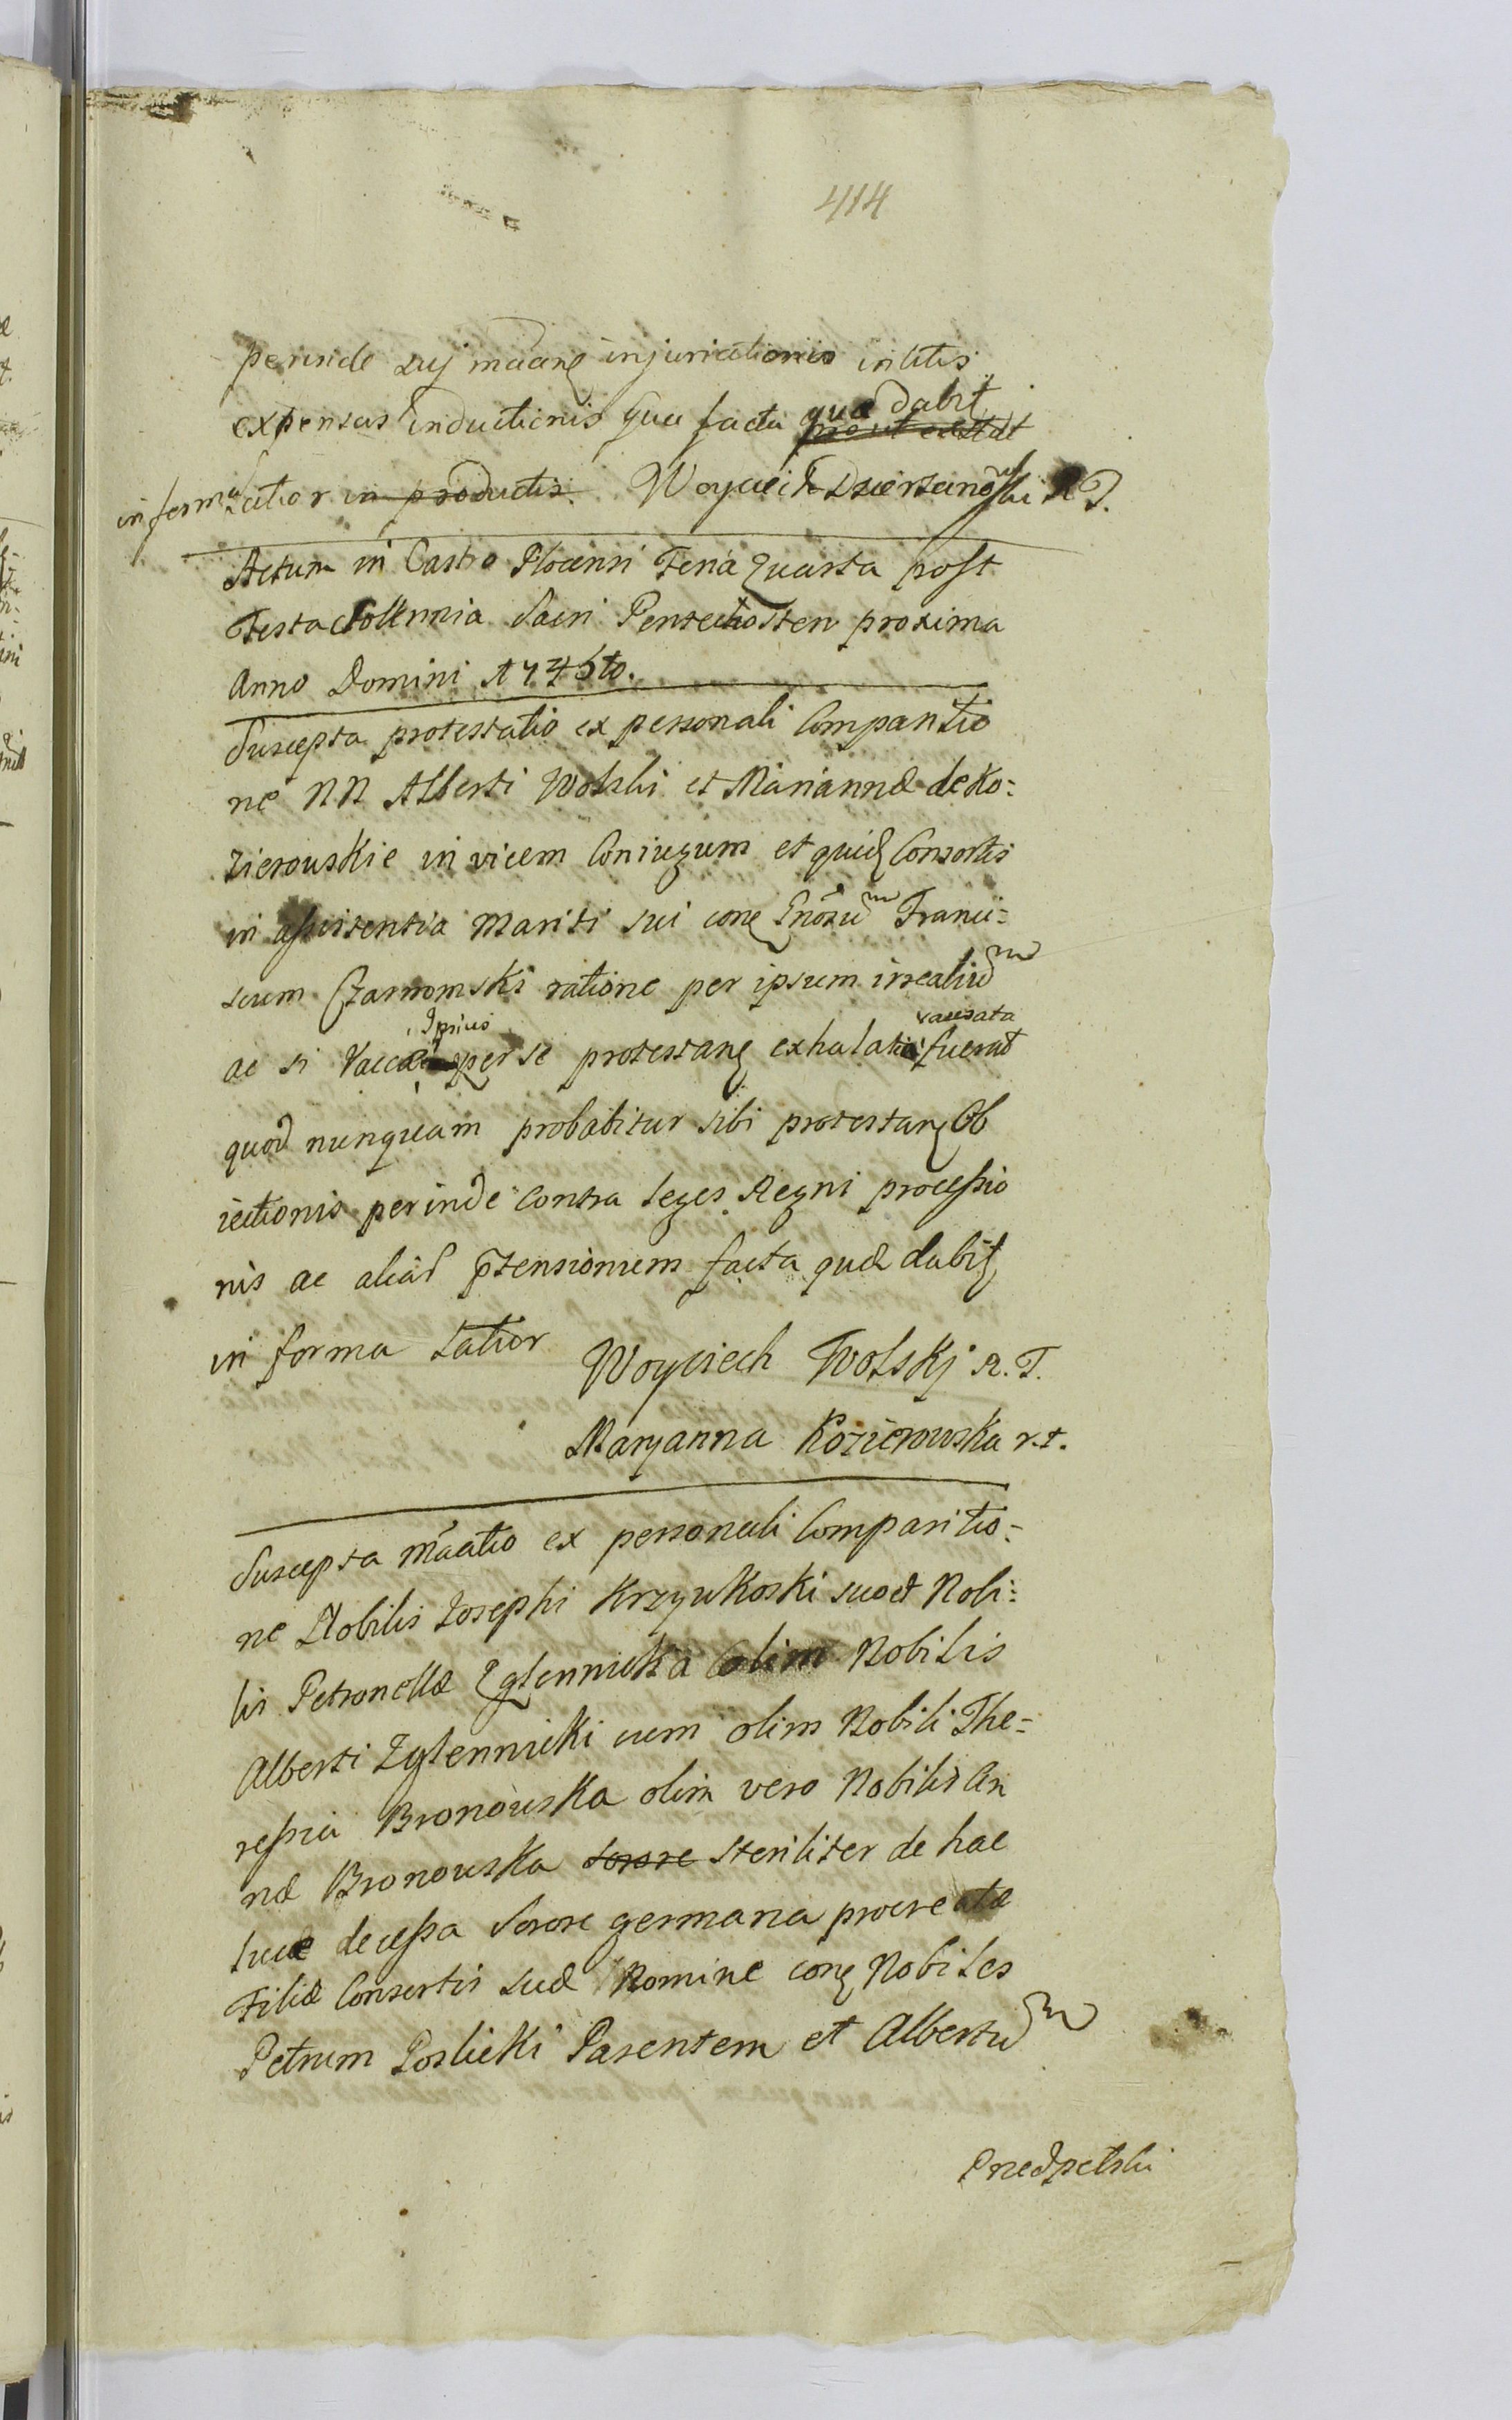 414
perinde suj mãang injuriationis in litis
expensas inductionis qua facta quæ dabit prout extat
in forma latior in productis. Woyciech Dzierzanowski R T.
Actum in Castro Plocensi Feria Quarta post
Festa Sollennia Sacri Pentechosten proxima
Anno Domini 1745to.
Suscepta protestatio ex personali Comparitio
ne NN Alberti Wolski et Mariannæ de Ko-
zierouskie in vicem Coniugum et quidq Consortis
in assistentia Mariti sui conq Gnõsum Franci-
scum Czarnomski ratione per ipsum irrealium
ac si Vaccæ Ipsius per se protestanq exhalatio causata fuerat
quod nunquam probabitur sibi protestanq Ob
iectionis perinde contra leges Regni processio
nis ac aliar prætensionum facta quæ dabitq
in forma Latior
Woyciech Wolskj R. T.
Maryanna Kozierowska r. t.
Suscepta mãatio ex personali Comparitio-
ne Nobilis Josephi Krzyukoski suo et Nobi-
lis Petronellæ Zglennicka olim Nobilis
Alberti Zglennicki cum olim Nobili The-
ressia Bronouska olim vero Nobilis An
næ Bronouska sorore steriliter de hac
luce decessa Sorore germana procreatæ
Filiæ Consortis suæ Nomine conq Nobiles
Petrum Poslicki Parentem et Albertum
Przedpelski